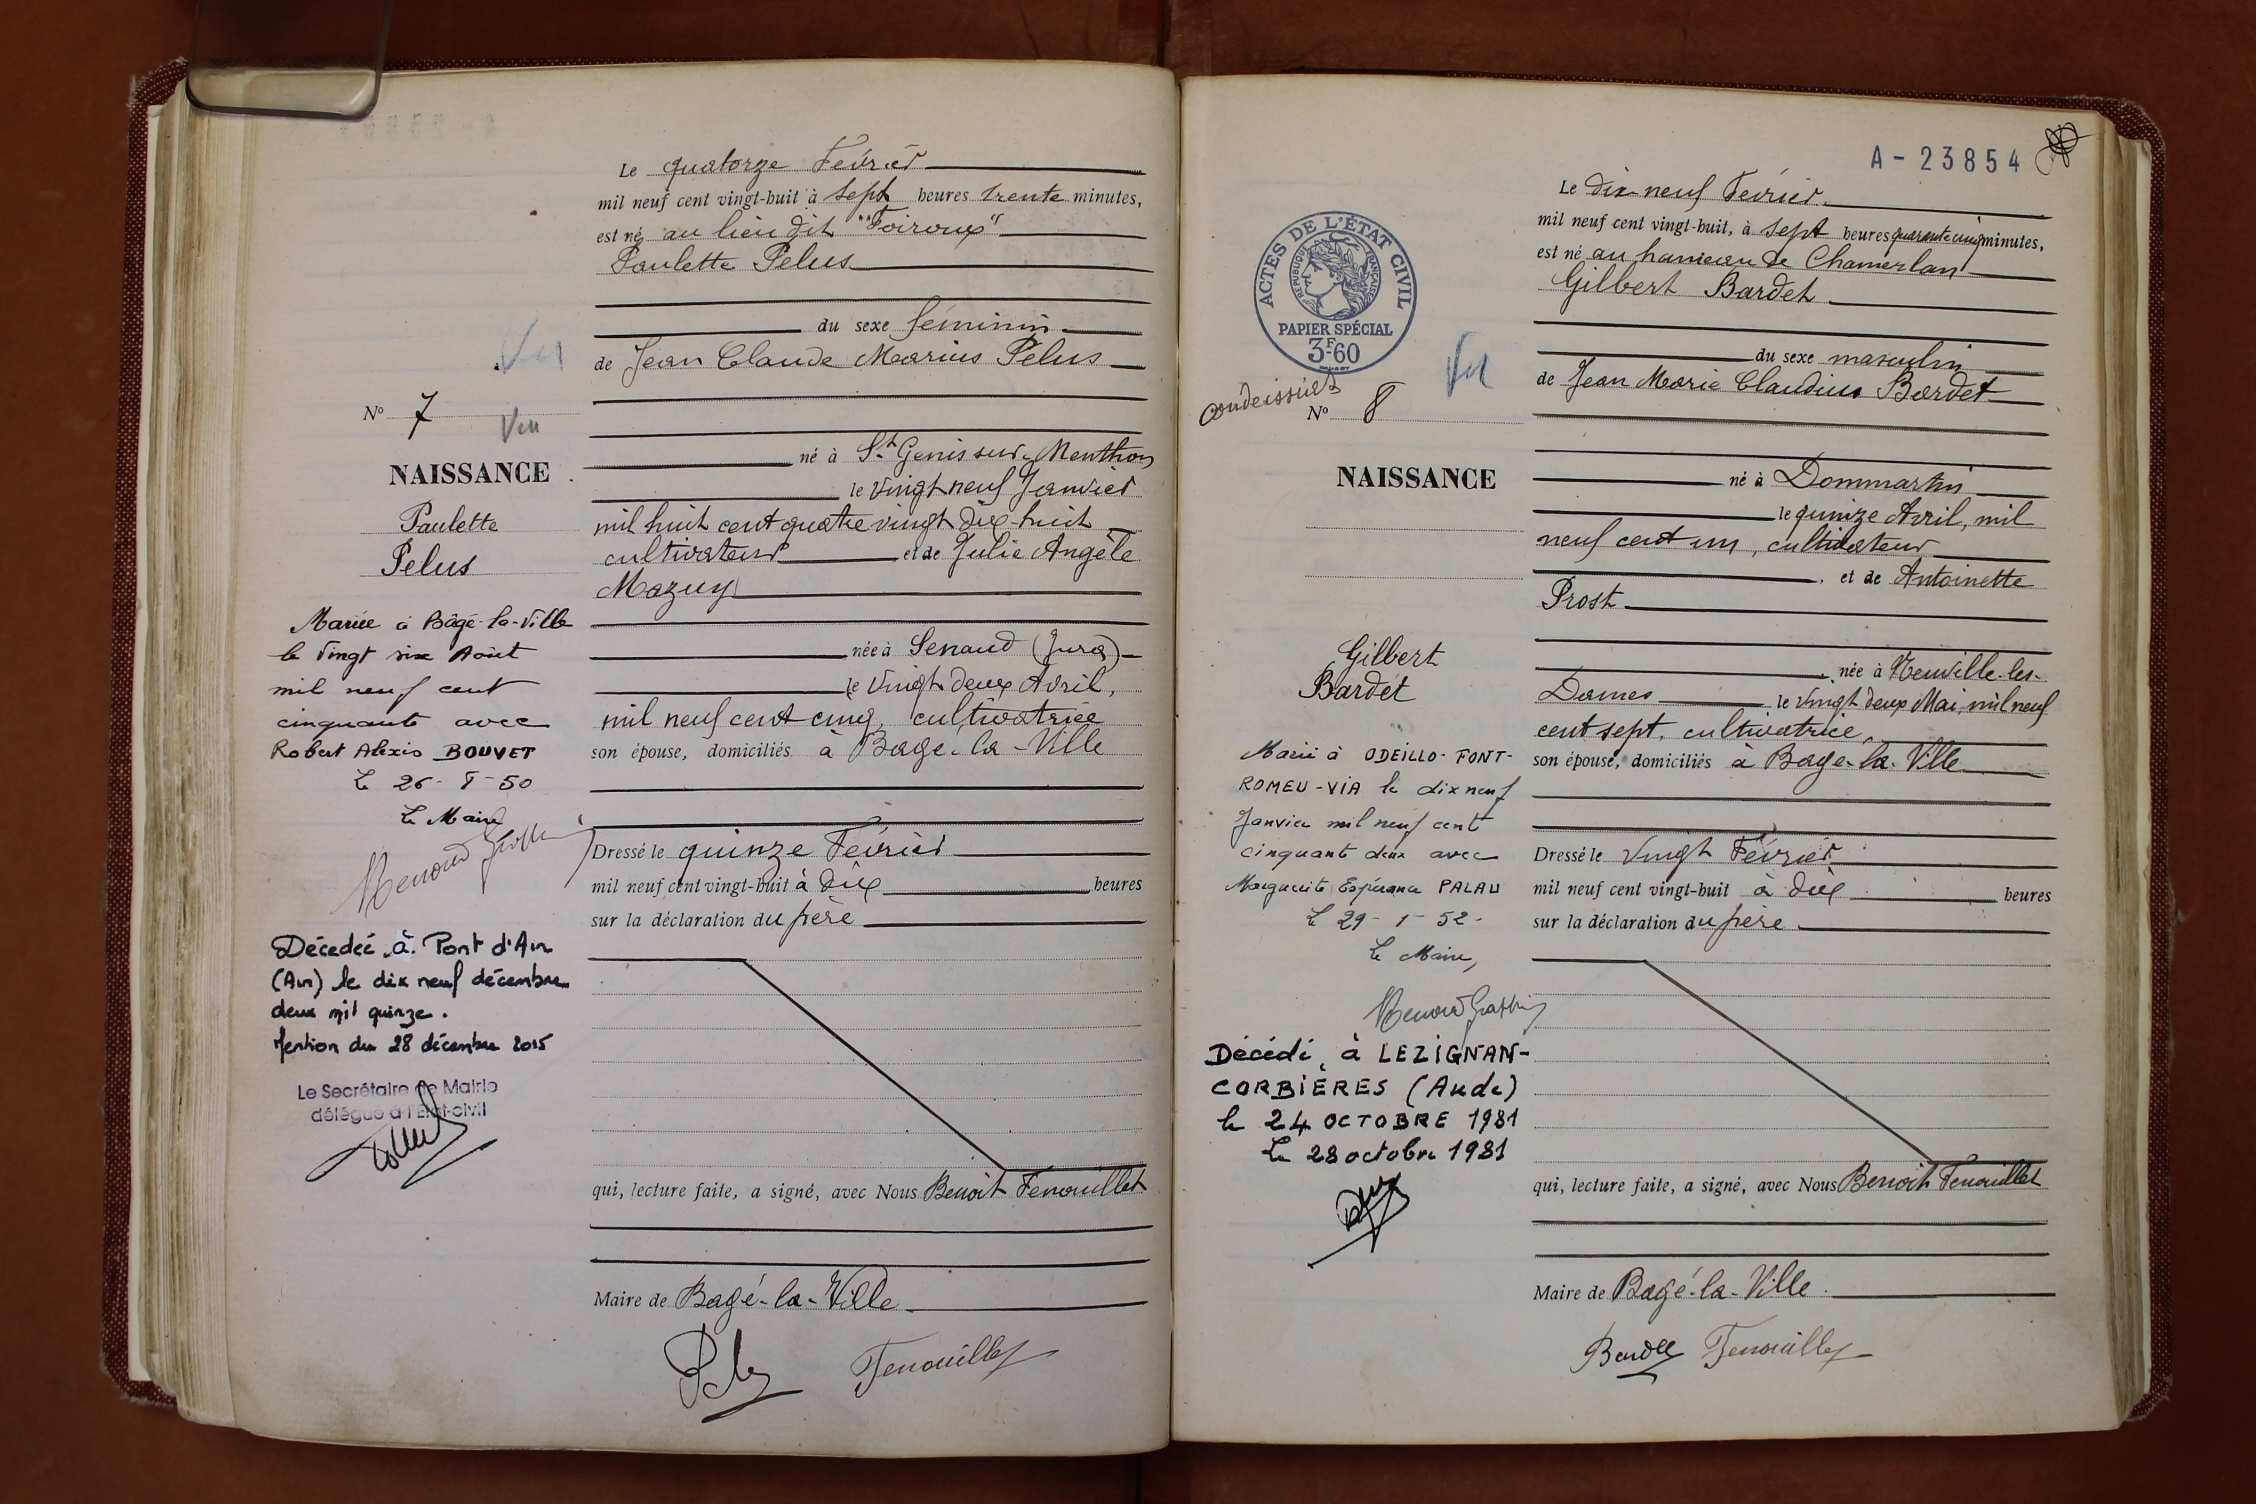 Le quatorze Février
mil neuf cent vingt-huit à sept heures trente minutes,
est né au lieu dit "Foiroux"
Paulette Pelus
du sexe féminin
de Jean Claude Marius Pelus
Vu
N° 7
Vu
né à St Genis sur Menthon
NAISSANCE
le vingt neuf Janvier
Paulette
mil huit cent quatre vingt dix-huit
Pelus
cultivateur et de Julie Angèle
Mazuy
Mariée à Bâgé-la-Ville
le vingt six Août
mil neuf cent
cinquante avec
Robert Alexis BOUVET
Le 26-8-50
Le Maire
née à Senaud (Jura)
le vingt deux Avril,
mil neuf cent cinq, cultivatrice
son épouse, domiciliés à Bagé-la-Ville
Dressé le quinze Février
mil neuf cent vingt-huit à dix heures
sur la déclaration du père
Décédée à Pont d'Ain
(Ain) le dix neuf décembre
deux mil quinze.
Mention du 28 décembre 2015
Le Secrétaire de Mairie
délégué à l'Etat-civil
qui, lecture faite, a signé, avec Nous Benoit Fenouillet
Maire de Bagé-la-Ville
Fenouillet
A-23854
Le dix-neuf Février
mil neuf cent vingt-huit, à sept heures quarante cinq minutes,
est né au hameau de Chamerlan
Gilbert Bardet
ACTES DE L'ÉTAT CIVIL
RÉPUBLIQUE FRANÇAISE
PAPIER SPÉCIAL
3F-60
du sexe masculin
de Jean Marie Claudius Bardet
Vu
N° 8
NAISSANCE
né à Dommartin
le quinze Avril, mil
neuf cent un, cultivateur
et de Antoinette
Prost
née à Neuville-les-
Dames le vingt deux Mai, mil neuf
cent sept, cultivatrice,
son épouse, domiciliés à Bagé-la-Ville
Gilbert
Bardet
Marié à ODEILLO-FONT-
ROMEU-VIA le dix neuf
Janvier mil neuf cent
cinquante deux avec
Marguerite Espérance PALAU
Le 29-1-52-
Le Maire,
Dressé le vingt Février
mil neuf cent vingt-huit à dix heures
sur la déclaration du père
Décédé à LEZIGNAN-
CORBIÈRES (Aude)
le 24 OCTOBRE 1981
Le 28 octobre 1981
qui, lecture faite, a signé, avec Nous Benoit Fenouillet
Maire de Bagé-la-Ville
Bardet Fenouillet